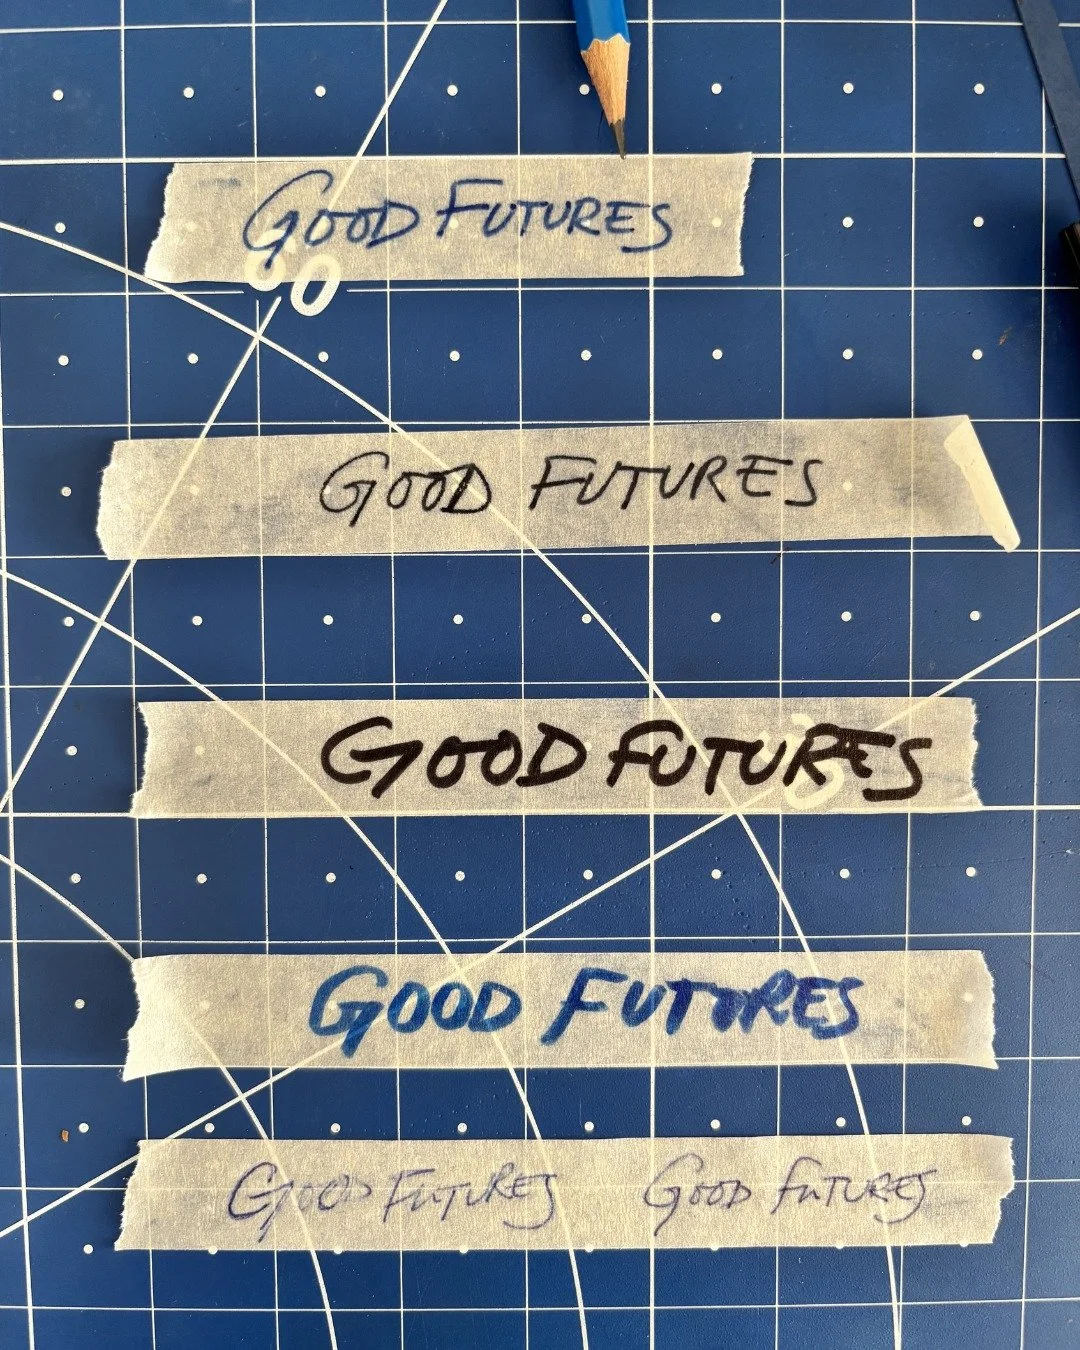 GOOD FUTURES
GOOD FUTURES
GOOD FUTURES
GOOD FUTURES
GOOD FUTURES GOOD FUTURES